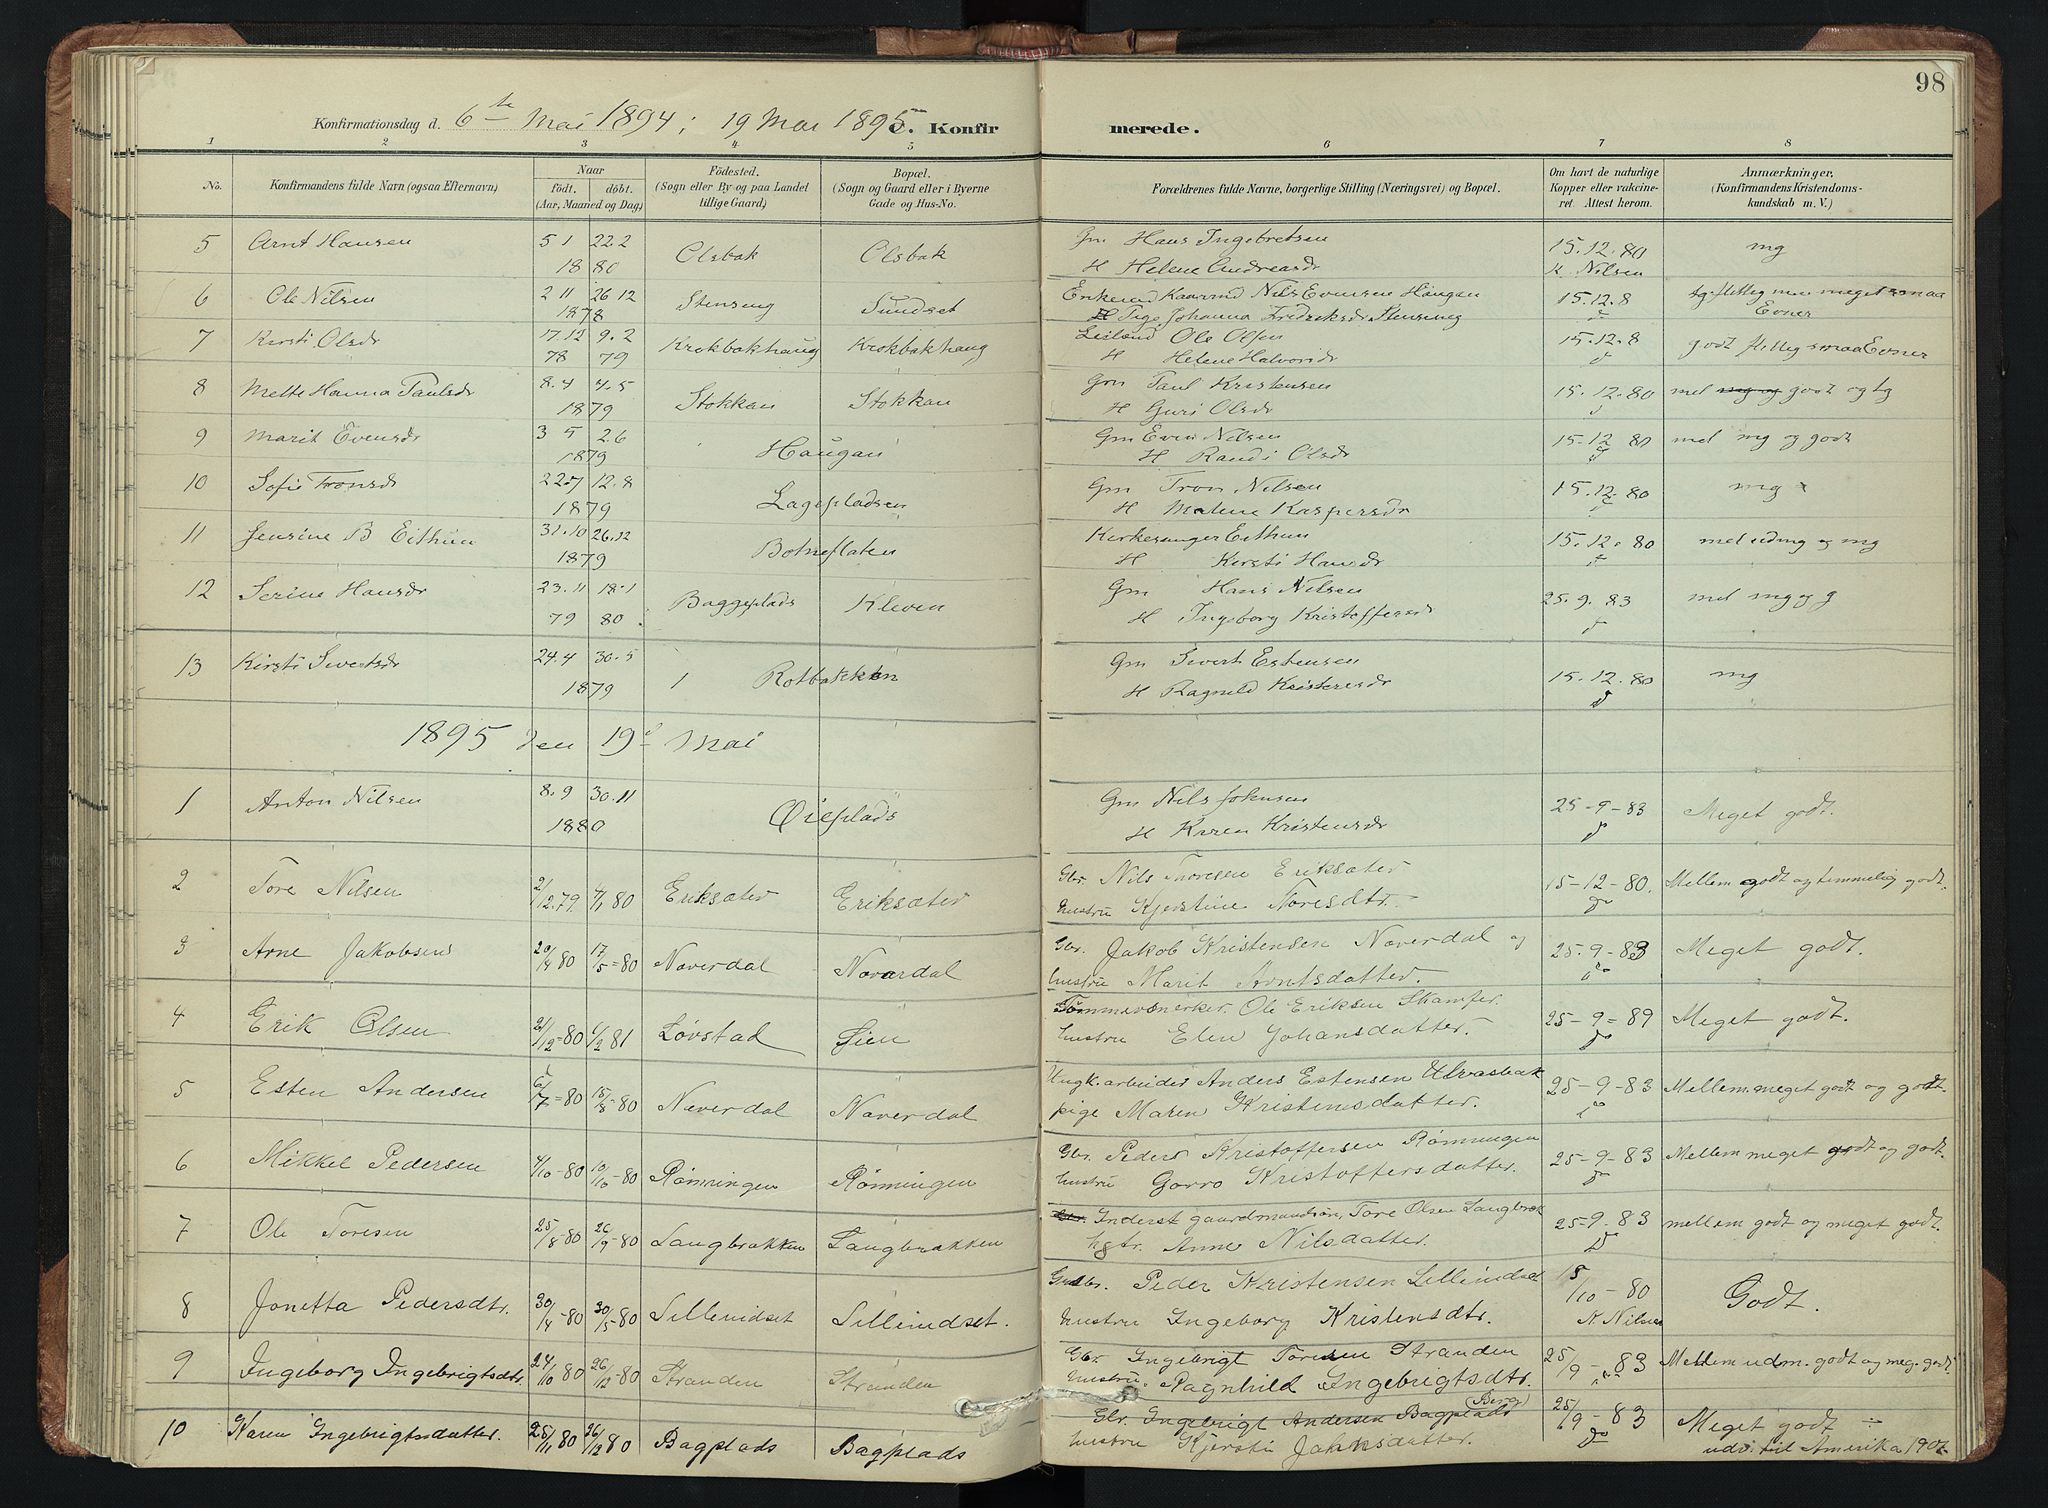 98
Konfirmationsdag d. 6te Mai 1894; 19 Mai 1895 C. Konfirmerede.
1 2 3 4 5 6 7 8
No. Konfirmandens fulde Navn (ogsaa Efternavn) Naar födt. döbt. (Aar, Maaned og Dag) Födested. (Sogn eller By og paa Landet tillige Gaard) Bopæl. (Sogn og Gaard eller i Byerne Gade og Hus-No. Forældrenes fulde Navne, borgerlige Stilling (Næringsvei) og Bopæl. Om havt de naturlige Kopper eller vakcineret. Attest herom. Anmærkninger. (Konfirmandens Kristendomskundskab m. V.)
5 Arnt Hansen 5 1 22.2 Olsbak Olsbak Gm Hans Ingebretsen 15.12.80 mg
18 80 H Helene Andreasdr K. Nilsen
6 Ole Nilsen 2 11 26 12 Stenseng Sundset Enkemd Kaarmd Nils Evensen Haugan 15.12.8 tg. flittig men meget smaa
1878 Pige Johanna Fredriksdr Stenseng Evner
7 Kirsti Olsdr 17.12 9.2 Krokbakhaug Krokbakhaug Leilænd Ole Olsen 15.12.8 godt flittig smaa Evner
78 79 H Helene Halvorsdr
8 Mette Hanna Paulsdr 8.4 4.5 Stokkan Stokkan Gm Paul Kristensen 15.12.80 mel mg og godt og tg
1879 H Guri Olsdr
9 Marit Evensdr 3 5 2 6 Haugan Gm Even Nilsen 15.12 80 mel mg og godt
1879 H Randi Olsdr
10 Sofie Tronsdr 22.7 12.8 Lagepladsen Gm Tron Nilsen 15.12.80 mg
1879 H Malene Kaspersdr
11 Jensine B Eithun 31.10 26.12 Botneflaten Kirkesanger Eithun 15.12.80 mel udmg og mg
1879 H Kirsti Hansdr
12 Serine Hansdr 23.11 18.1 Baggeplads Kleven Gm Hans Nilsen 25.9.83 mel mg og g
79 80 H Ingeborg Kristoffersdr
13 Kirsti Sivertsdr 24.4 30.5 Rotbakken Gm Sivert Estensen 15.12.80 mg
1879 H Ragnild Kristensdr
1895 den 19d Mai
1 Anton Nilsen 8.9 30.11 Øieplads Gm Nils Johnsen 25-9-83 Meget godt.
1880 H Karen Kristensdr
2 Tore Nilsen 2/12.79 4/1 80 Eriksæter Eriksæter Gbr. Nils Thoresen Eriksæter 15-12-80. Mellem godt og temmelig godt.
hustru Kjerstine Toresdtr. do
3 Arne Jakobsen 20/4 80 17/5-80 Naverdal Naverdal Gbr. Jakob Kristensen Naverdal og 25-9-83 Meget godt.
hustru Marit Arntsdatter. do
4 Erik Olsen 21/12-80 4/2 81 Løvstad Øien Tømmermerker. Ole Eriksen Skamfer. 25-9-89 Meget godt.
hustru Elen Johansdatter. do
5 Esten Andersen 6/7-80 15/8-80 Naverdal Naverdal Ungk. arbeider Anders Estensen Ulvasbak 25-9-83 Mellem meget godt og godt.
pige Maren Kristensdatter. do
6 Mikkel Pedersen 4/10-80 10/10-80 Rønningen Rønningen Gbr. Peder Kristoffersen Rønningen 25-9-83 Mellem meget godt og godt.
hustru Gorro Kristoffersdatter. do
7 Ole Toresen 25/8-80 26/9-80 Langbrækken Langbrækken Inderst gaardmandssøn, Tore Olsen Langbræk 25-9-83 mellem godt og meget godt.
hstr. Anne Nilsdatter. do
8 Jonetta Pedersdtr. 30/4-80 30/5-80 Sillemdset Sillemdset. Gbr. Peder Kristensen 15/10-80 Godt.
hustru Ingeborg Kristensdtr. N. Nilsen
9 Ingeborg Ingebrigtsdtr. 24/10 80 26/12-80 Stranden Stranden Gbr. Ingebrigt Toresen Stranden 25/9-83 Mellem udm. godt og meg. godt
hustru. Ragnhild Ingebrigtsdtr.
10 Karen Ingebrigtsdatter. 25/11 80 26/12 80 Bagplads Bagplads Gbr. Ingebrigt Andersen Bagplads (Berg) 25/9-83 Meget godt ÷
hustru Kjersti Jakobsdatter. do udv. til Amerika 1902